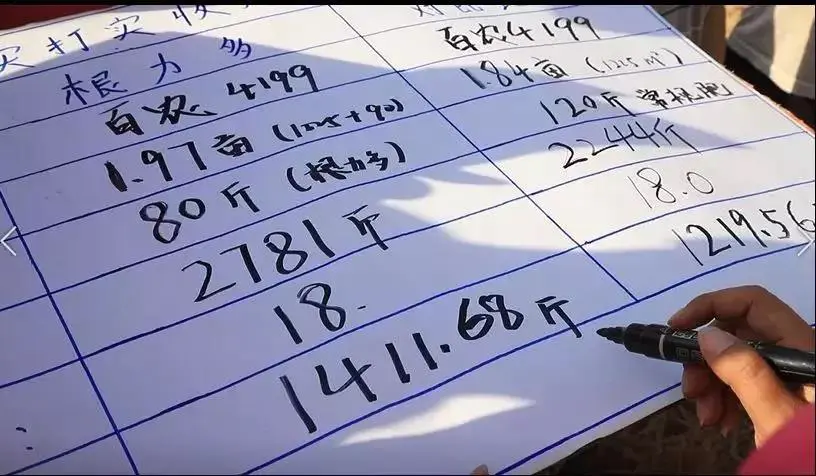 实打实收
根力多
百农 4199
百农4199
1.97亩 (1225+90)
1.84亩 (1225m²)
80斤 (根力多)
120斤 常规肥
2781斤
2244斤
18.
18.0
1411.68斤
1219.56